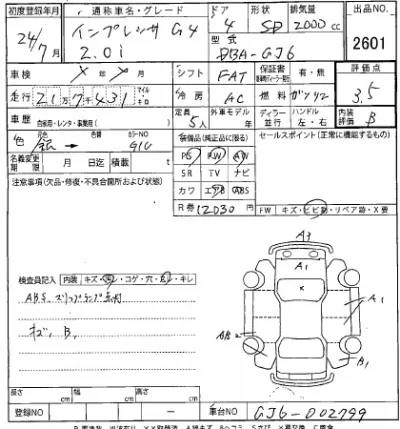 初度登録年月 通称車名・グレード ドア 形状 排気量 出品NO.
24/7 インプレッサ G4 4 SD 2000 cc
2.0i 型式 DBA-GJ6 2601
車検 年 月 シフト FAT 保証書 有・無 評価点
走行 21万7千431 マイル キロ 冷房 AC 燃料 ガソリン 3.5
車歴 自家用・レンタ・事業用 定員 5人 外車モデル ディーラー 並行 ハンドル 左・右 内装評価 B
色 元色 銀 → 色替 カラーNO G1U 装備品(純正品に限る) セールスポイント(正常に機能するもの)
名義変更期限 月 日迄 積載 t
PS PW AW
SR TV ナビ
カワ エアB ABS
R券 12030 円
FW キズ・ヒビ割・リペア跡・X要
注意事項(欠品・修復・不具合箇所および状態)
検査員記入 内装 キズ・コゲ・穴・キレ
ABS スリップランプ点灯
キズ、B,
A3
A1
×
A1
B1
長さ cm 幅 cm 高さ cm
登録NO - 車台NO GJ6-002799